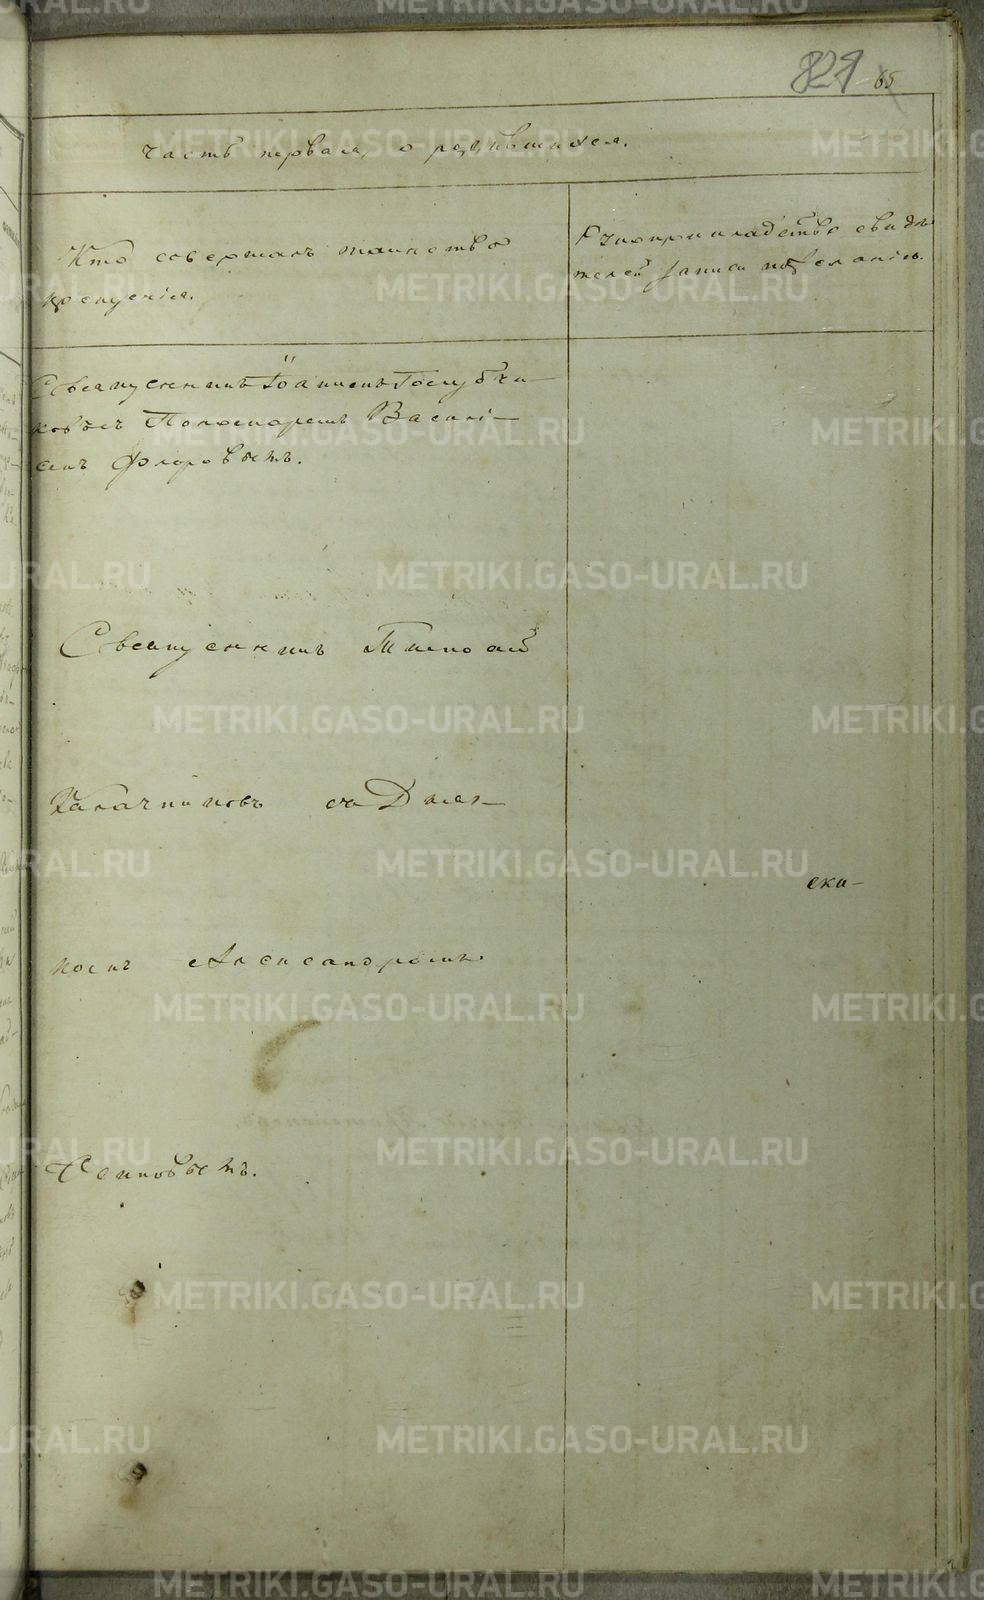 829 65
Часть первая, о родившихся.
Кто совершалъ таинство
крещенія.
Рукоприкладство свидѣ-
телей записи по желанію.
Священникъ Іоаннъ Голубчи-
ковъ съ Пономаремъ Васелі-
емъ Флоровымъ.
Священникъ Тимофей
Калачниковъ съ Діа-
кономъ Александромъ
Поповымъ.
ска-
METRIKI.GASO-URAL.RU